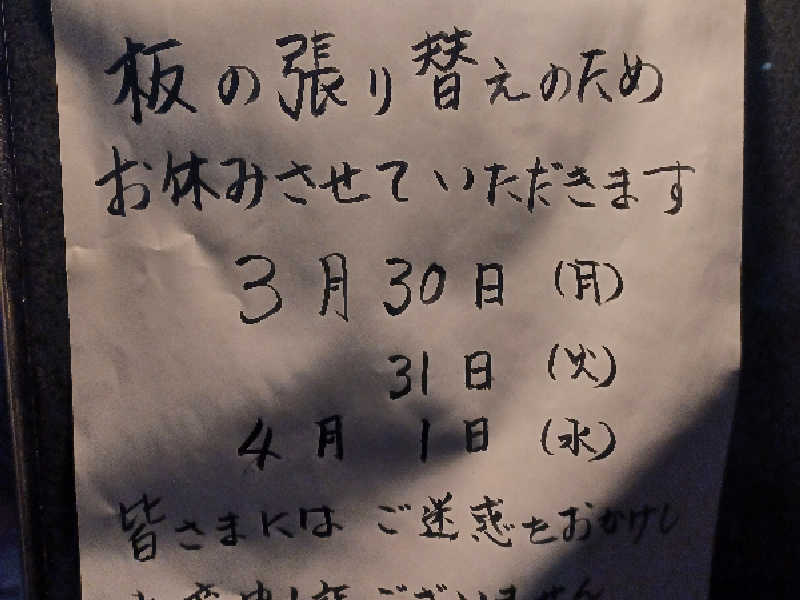 板の張り替えのため
お休みさせていただきます
3月30日(月)
31日(火)
4月1日(水)
皆さまにはご迷惑をおかけし